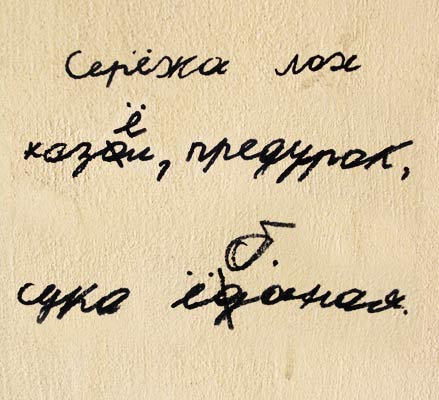 Серёжа лох
козёл, предурок,
сука ёбаная.